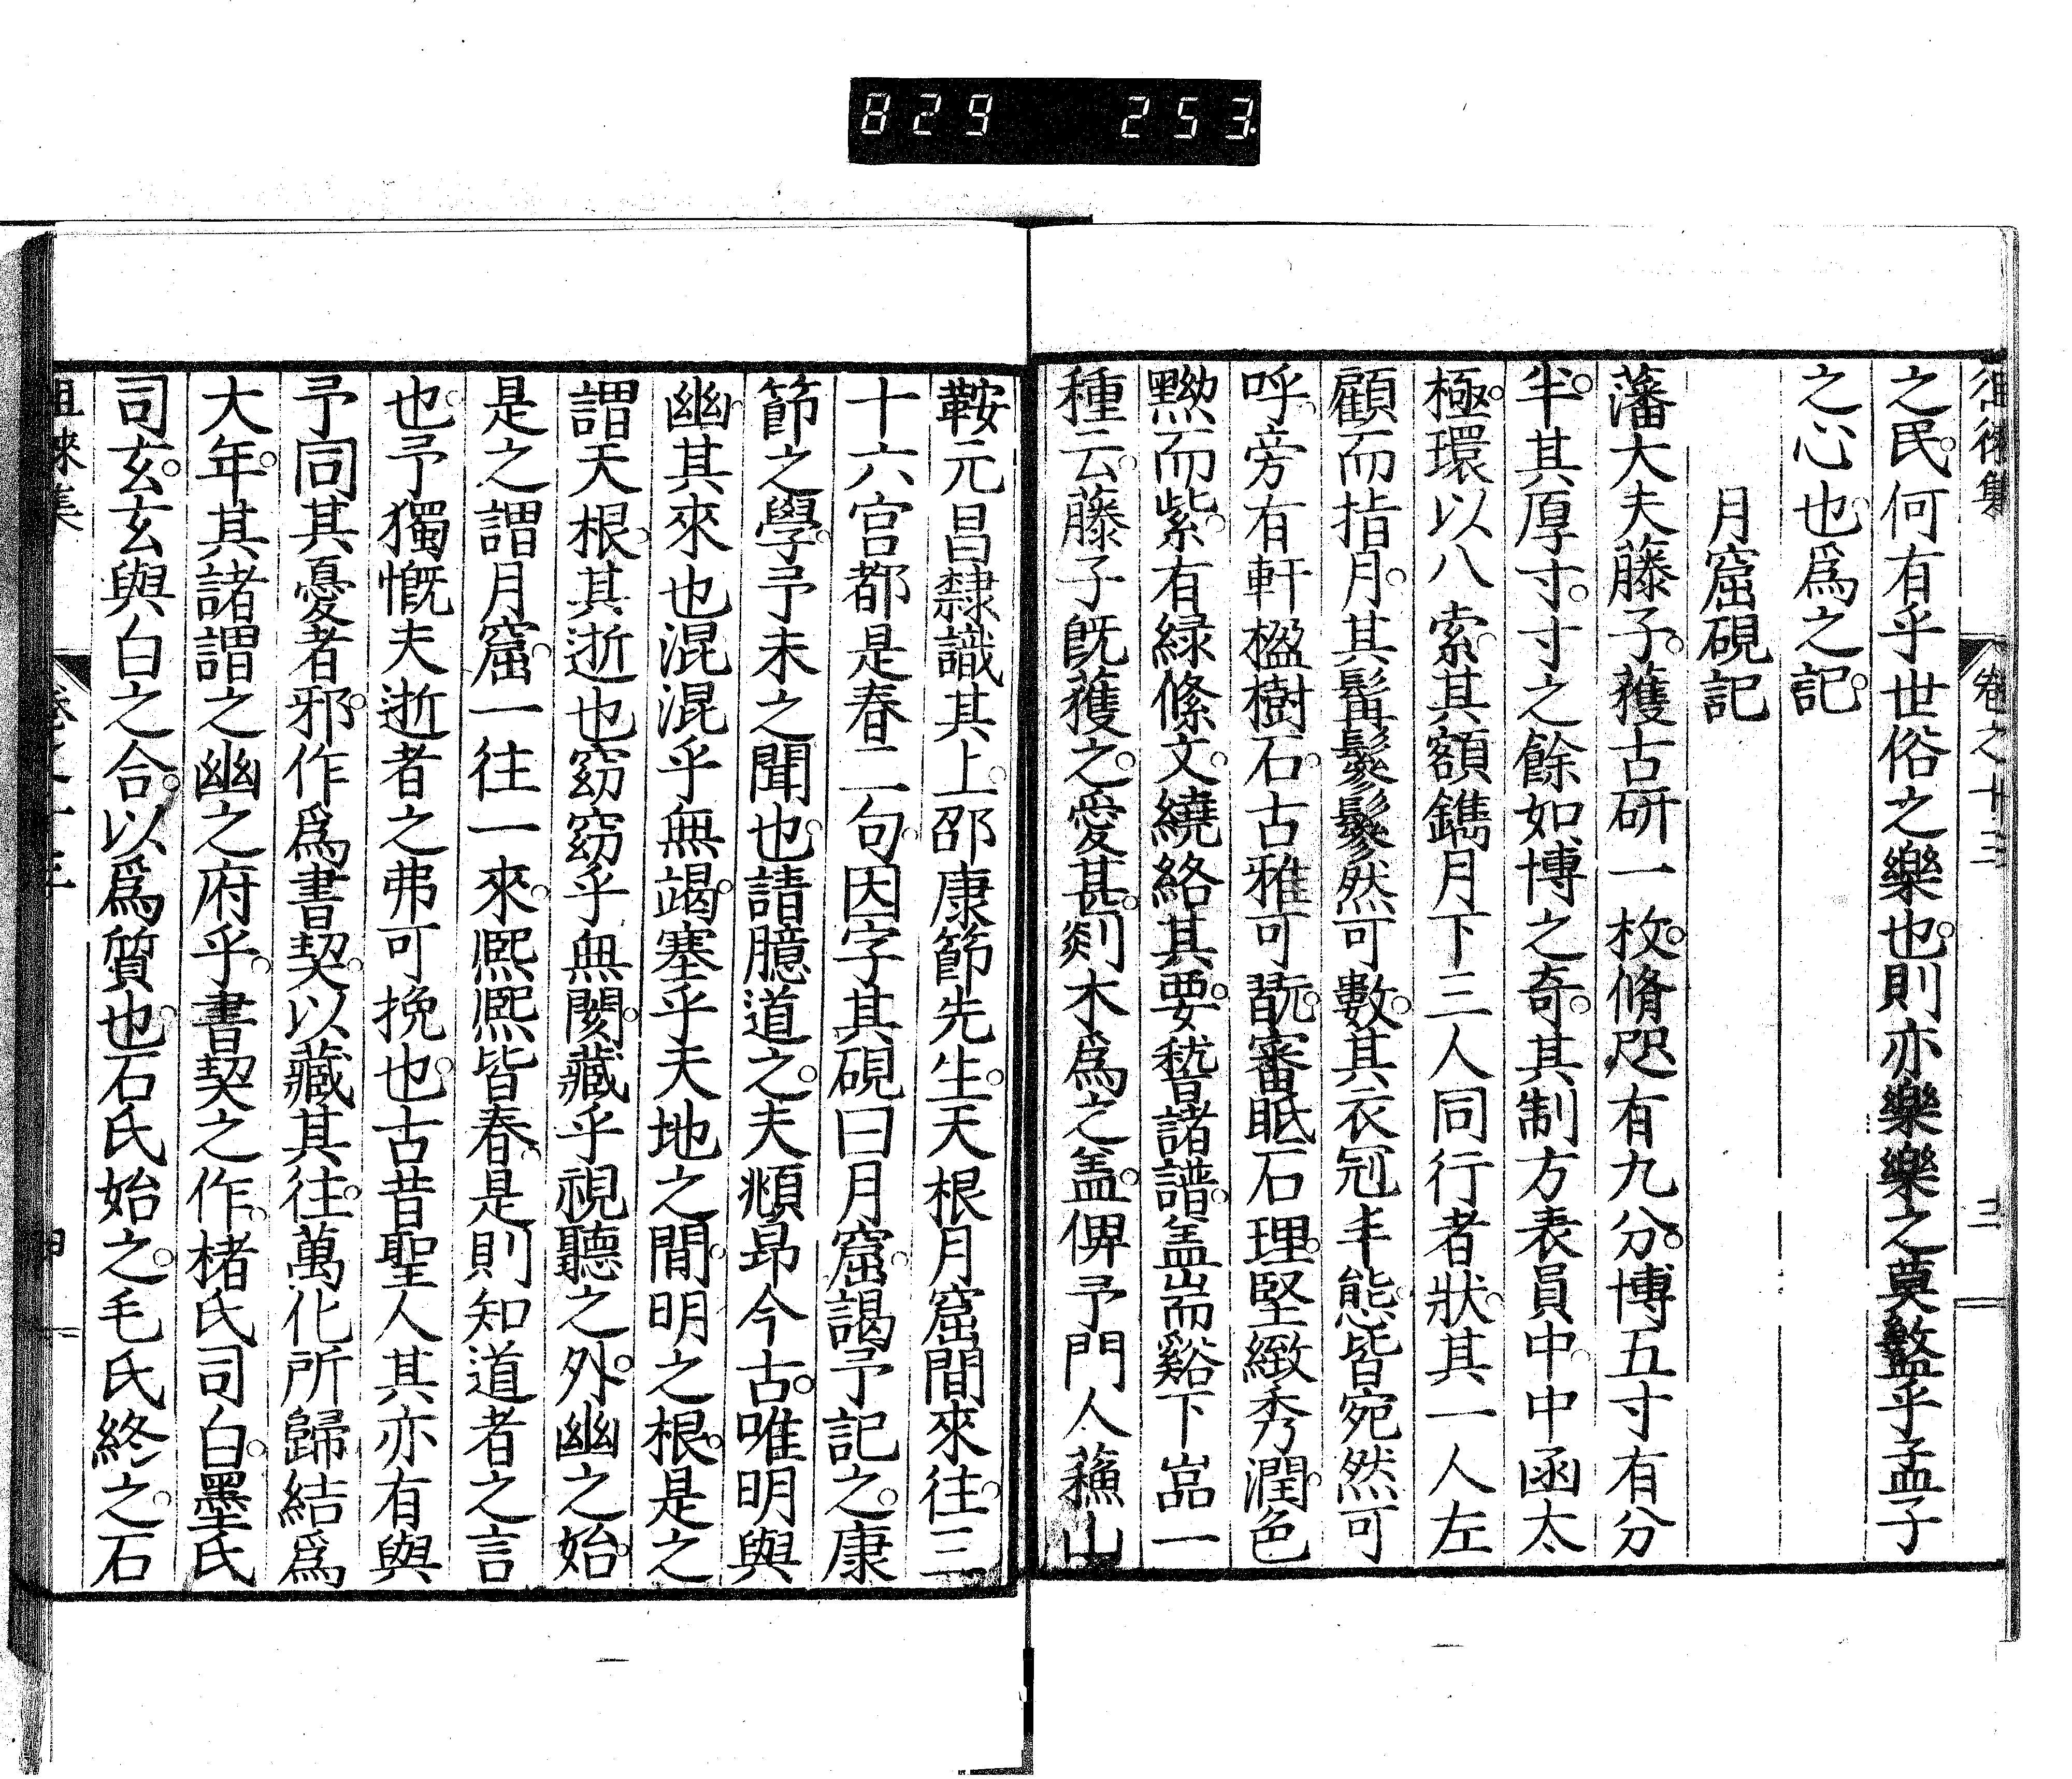 829 253
徂徠集 卷之十三 三
之民。何有乎世俗之樂也。則亦樂樂之莫盭乎孟子
之心也。爲之記。
月窟硯記
藩大夫藤子。獲古研一枚。脩咫有九分。博五寸有分
半。其厚寸。寸之餘如博之奇。其制方表員中。中函太
極。環以八索。其額鐫月下三人同行者狀。其一人左
顧而指月。其髯鬖鬖然可數。其衣冠丰態。皆宛然可
呼。旁有軒楹樹石。古雅可翫。審眂石理。堅緻秀潤。色
黝而紫。有緑絛文。繞絡其要。嵇諸譜。盖耑谿下嵒一
種云。藤子旣獲之。愛甚。剡木爲之盖。俾予門人蘓山
鞍元昌隸識其上。邵康節先生。天根月窟間來往。三
十六宮都是春二句。因字其硯曰月窟。謁予記之。康
節之學。予未之聞也。請臆道之。夫頫昂今古。唯明與
幽。其來也混混乎無竭。塞乎天地之間。明之根。是之
謂天根。其逝也窈窈乎無閡。藏乎視聽之外。幽之始。
是之謂月窟。一往一來。熙熙皆春。是則知道者之言
也。予獨慨夫逝者之弗可挽也。古昔聖人其亦有與
予同其憂者邪。作爲書契。以藏其往。萬化所歸。結爲
大年。其諸謂之幽之府乎。書契之作。楮氏司白。墨氏
司玄。玄與白之合。以爲質也。石氏始之。毛氏終之。石